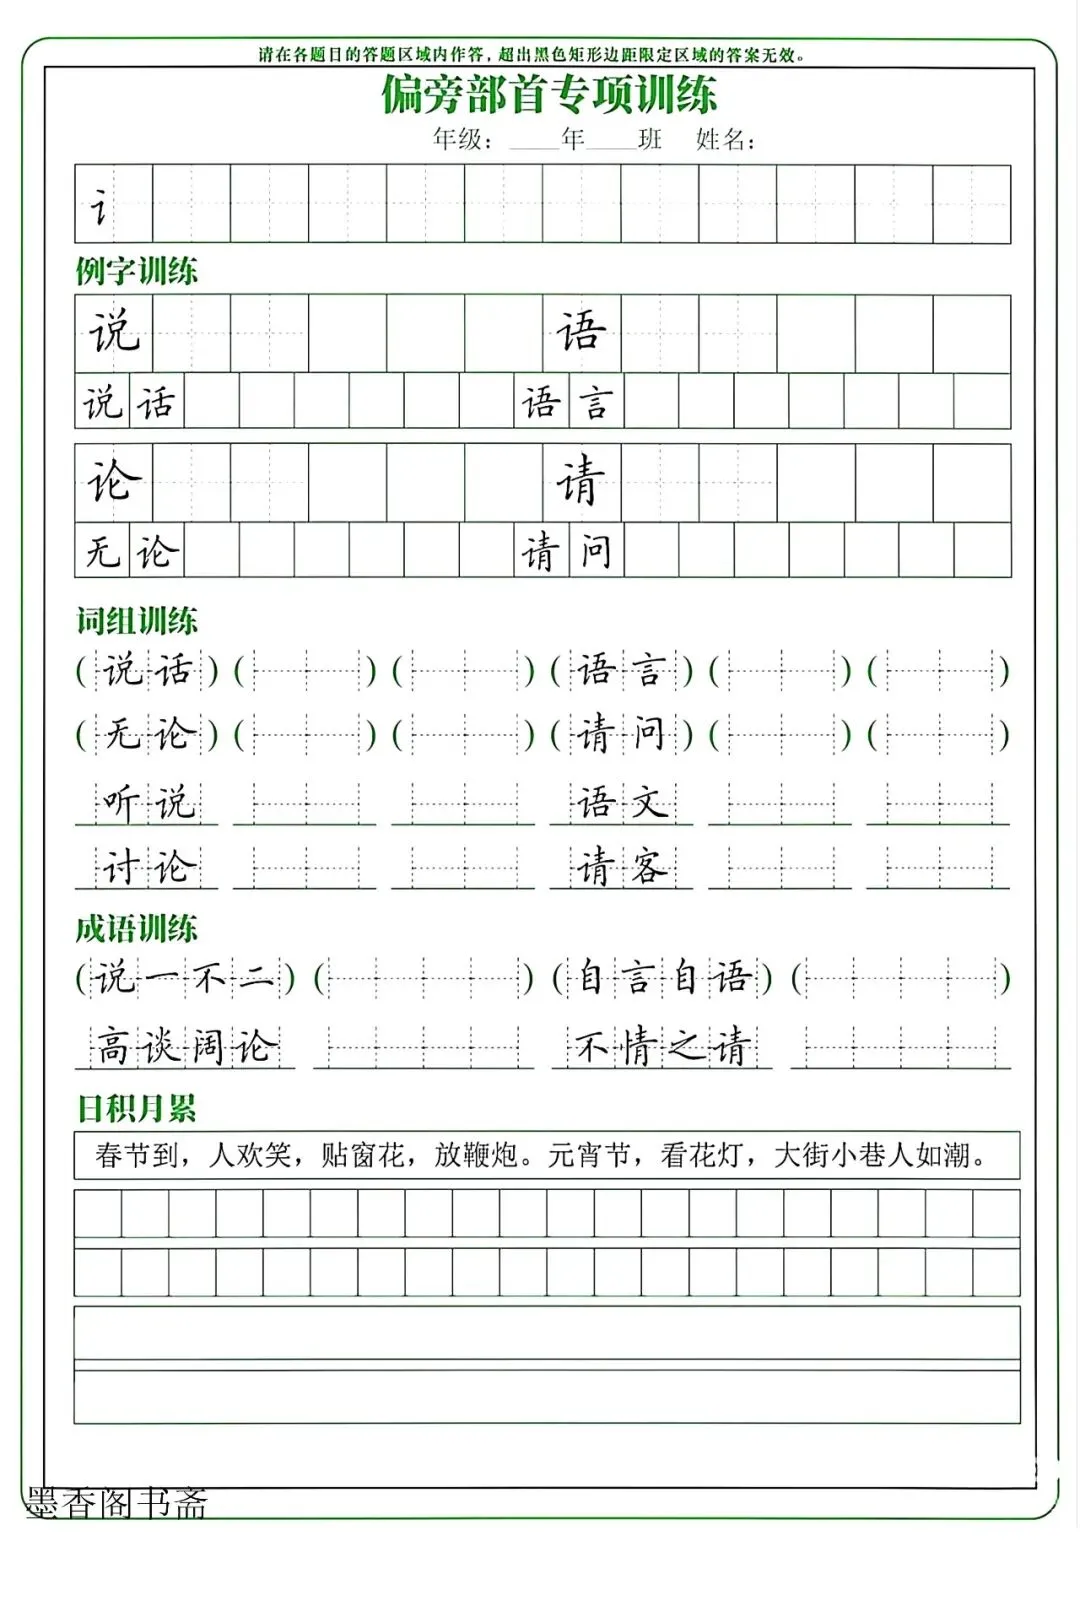 请在各题目的答题区域内作答，超出黑色矩形边距限定区域的答案无效。
偏旁部首专项训练
年级：____年____班 姓名：
讠
例字训练
说 语
说话 语言
论 请
无论 请问
词组训练
（说话）（ ）（ ）（语言）（ ）（ ）
（无论）（ ）（ ）（请问）（ ）（ ）
听说 语文
讨论 请客
成语训练
（说一不二）（ ）（自言自语）（ ）
高谈阔论 不情之请
日积月累
春节到，人欢笑，贴窗花，放鞭炮。元宵节，看花灯，大街小巷人如潮。
墨香阁书斋